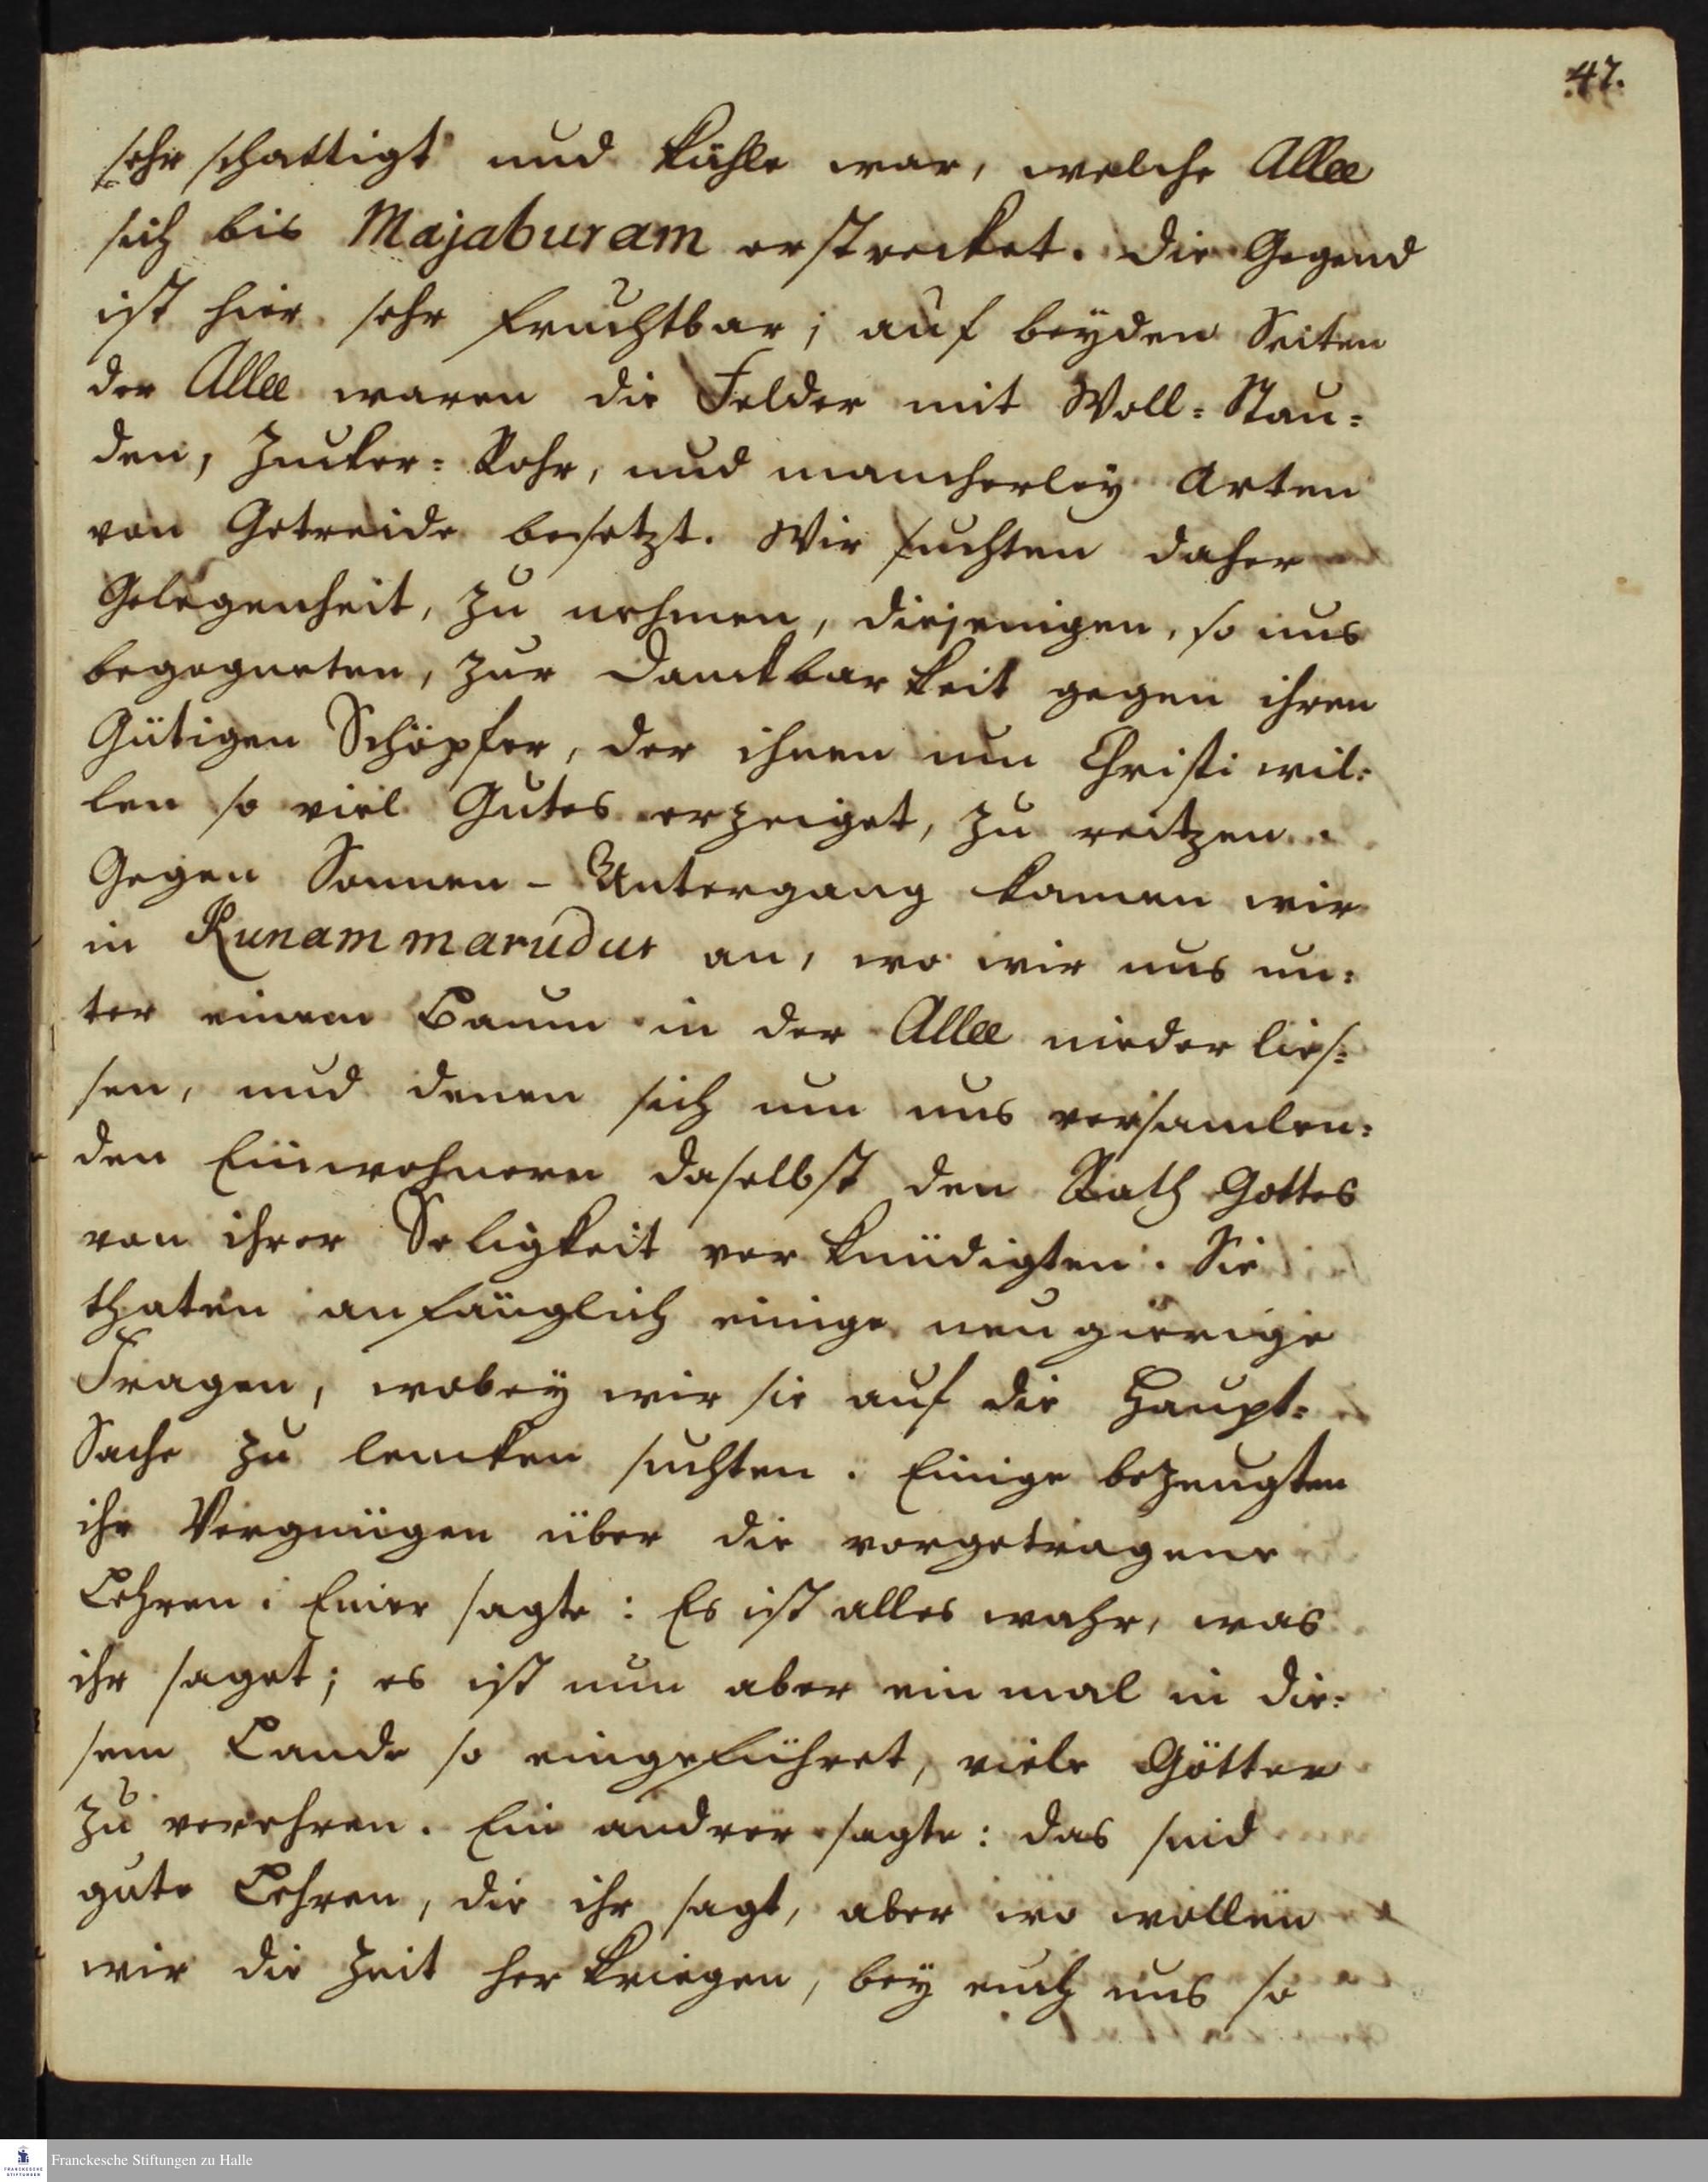 47.
sehr schattigt und kühle war, welche Allee
sich bis Majaburam erstrecket. Die Gegend
ist hier sehr fruchtbar; auf beyden Seiten
der Allee waren die Felder mit Woll=Stau=
den, Zucker=Rohr, und mancherley Arten
von Getreide besetzt. Wir suchten daher
Gelegenheit, zu nehmen, diejenigen, so uns
begegneten, zur Danckbarkeit gegen ihren
Gütigen Schöpfer, der ihnen um Christi wil=
len so viel Gutes erzeiget, zu reitzen.
Gegen Sonnen-Untergang kamen wir
in Kunammarudur an, wo wir uns un=
ter einem Baum in der Allee nieder lies=
sen, und denen sich um uns versamlen=
den Einwohnern daselbst den Rath Gottes
von ihrer Seligkeit verkündigten. Sie
thaten anfänglich einige neugierige
Fragen, wobey wir sie auf die Haupt=
Sache zu lencken suchten. Einige bezeugten
ihr Vergnügen über die vorgetragene
Lehren. Einer sagte: Es ist alles wahr, was
ihr saget; es ist nun aber einmal in die=
sem Lande so eingeführet, viele Götter
zu verehren. Ein andrer sagte: das sind
gute Lehren, die ihr sagt, aber wo wollen
wir die Zeit her kriegen, bey euch uns so
FRANCKESCHE
STIFTUNGEN
Franckesche Stiftungen zu Halle